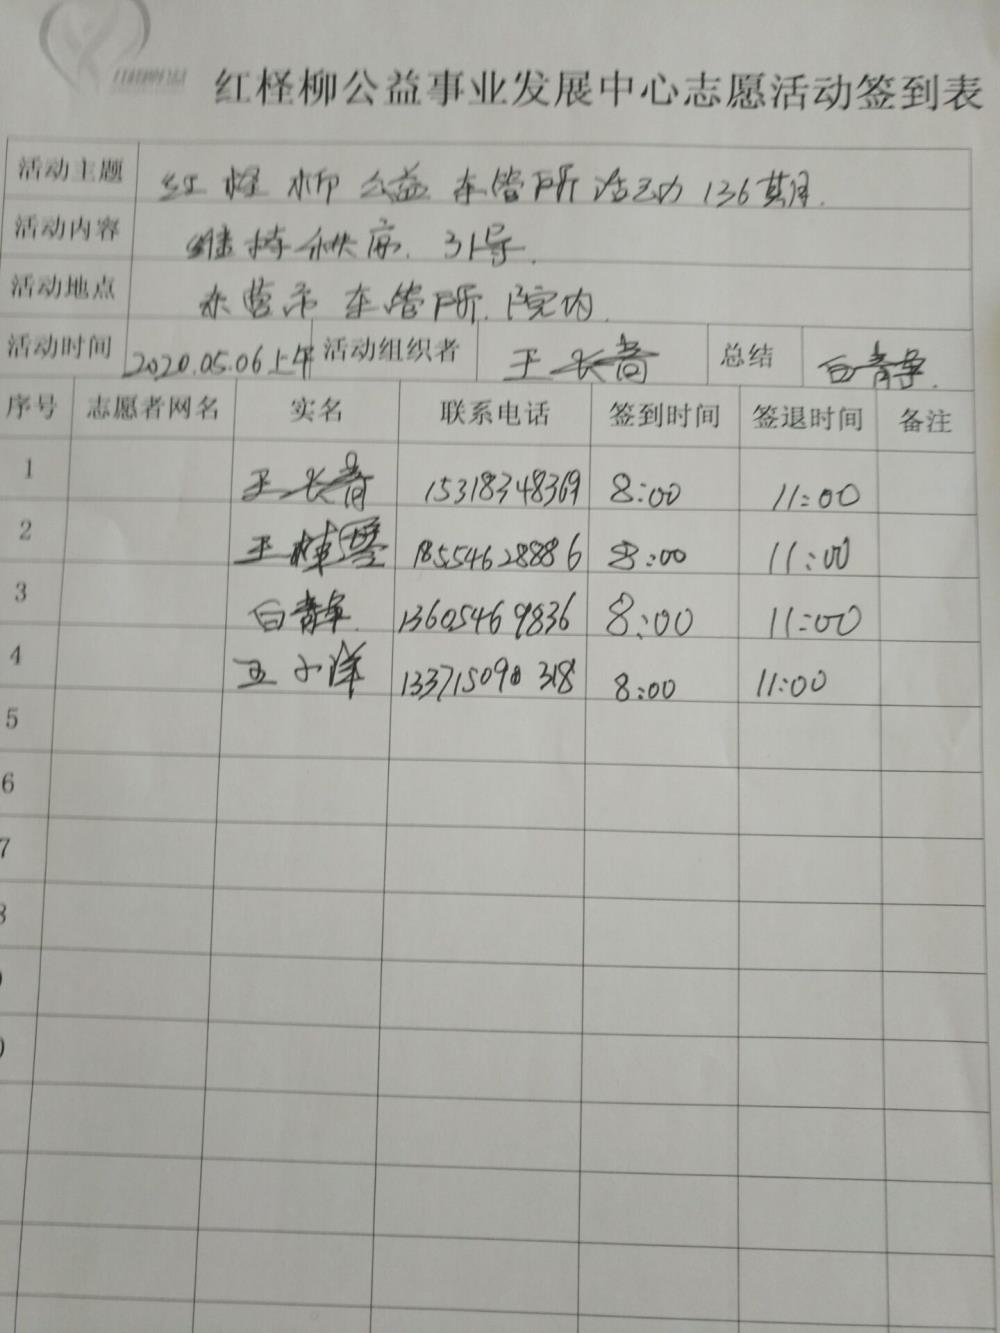 红柽柳公益事业发展中心志愿活动签到表
活动主题 红柽柳公益车管所活动136期.
活动内容 维持秩序. 31号.
活动地点 东营市车管所.院内.
活动时间 2020.05.06上午 活动组织者 王长青 总结 白青争.
序号 志愿者网名 实名 联系电话 签到时间 签退时间 备注
1 王长青 15318348369 8:00 11:00
2 王 18554628886 8:00 11:00
3 白青争. 13605469836 8:00 11:00
4 王小洋 13371509 318 8:00 11:00
5
6
7